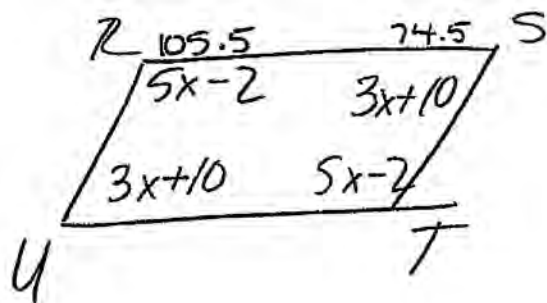 R 105.5 74.5 S
5x-2 3x+10
3x+10 5x-2
U T